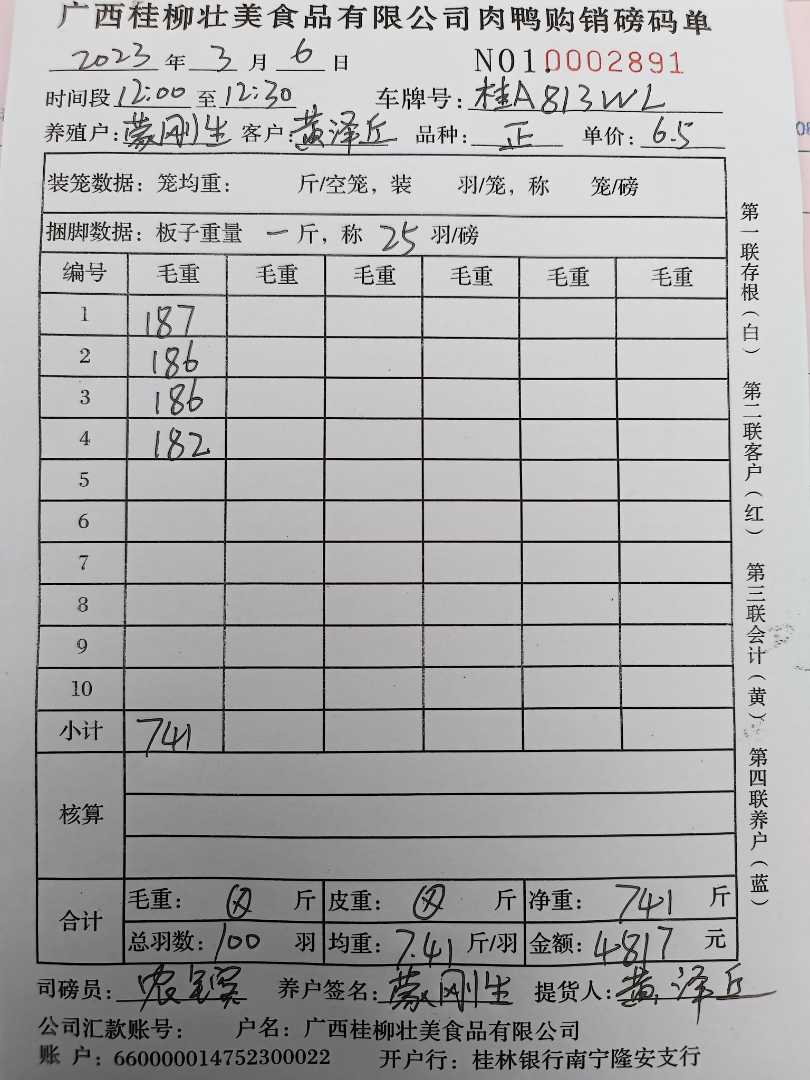 广西桂柳壮美食品有限公司肉鸭购销磅码单
2023 年 3 月 6 日 NO1.0002891
时间段 12:00 至 12:30 车牌号: 桂A813WL
养殖户: 蒙刚生 客户: 黄泽丘 品种: 正 单价: 6.5
装笼数据: 笼均重: 斤/空笼, 装 羽/笼, 称 笼/磅
捆脚数据: 板子重量 一 斤, 称 25 羽/磅
编号 毛重 毛重 毛重 毛重 毛重 毛重
1 187
2 186
3 186
4 182
5
6
7
8
9
10
小计 741
核算
合计
毛重: 斤 皮重: 斤 净重: 741 斤
总羽数: 100 羽 均重: 7.41 斤/羽 金额: 4817 元
司磅员: 养户签名: 蒙刚生 提货人: 黄泽丘
公司汇款账号: 户名: 广西桂柳壮美食品有限公司
账 户: 660000014752300022 开户行: 桂林银行南宁隆安支行
第一联存根(白) 第二联客户(红) 第三联会计(黄) 第四联养户(蓝)